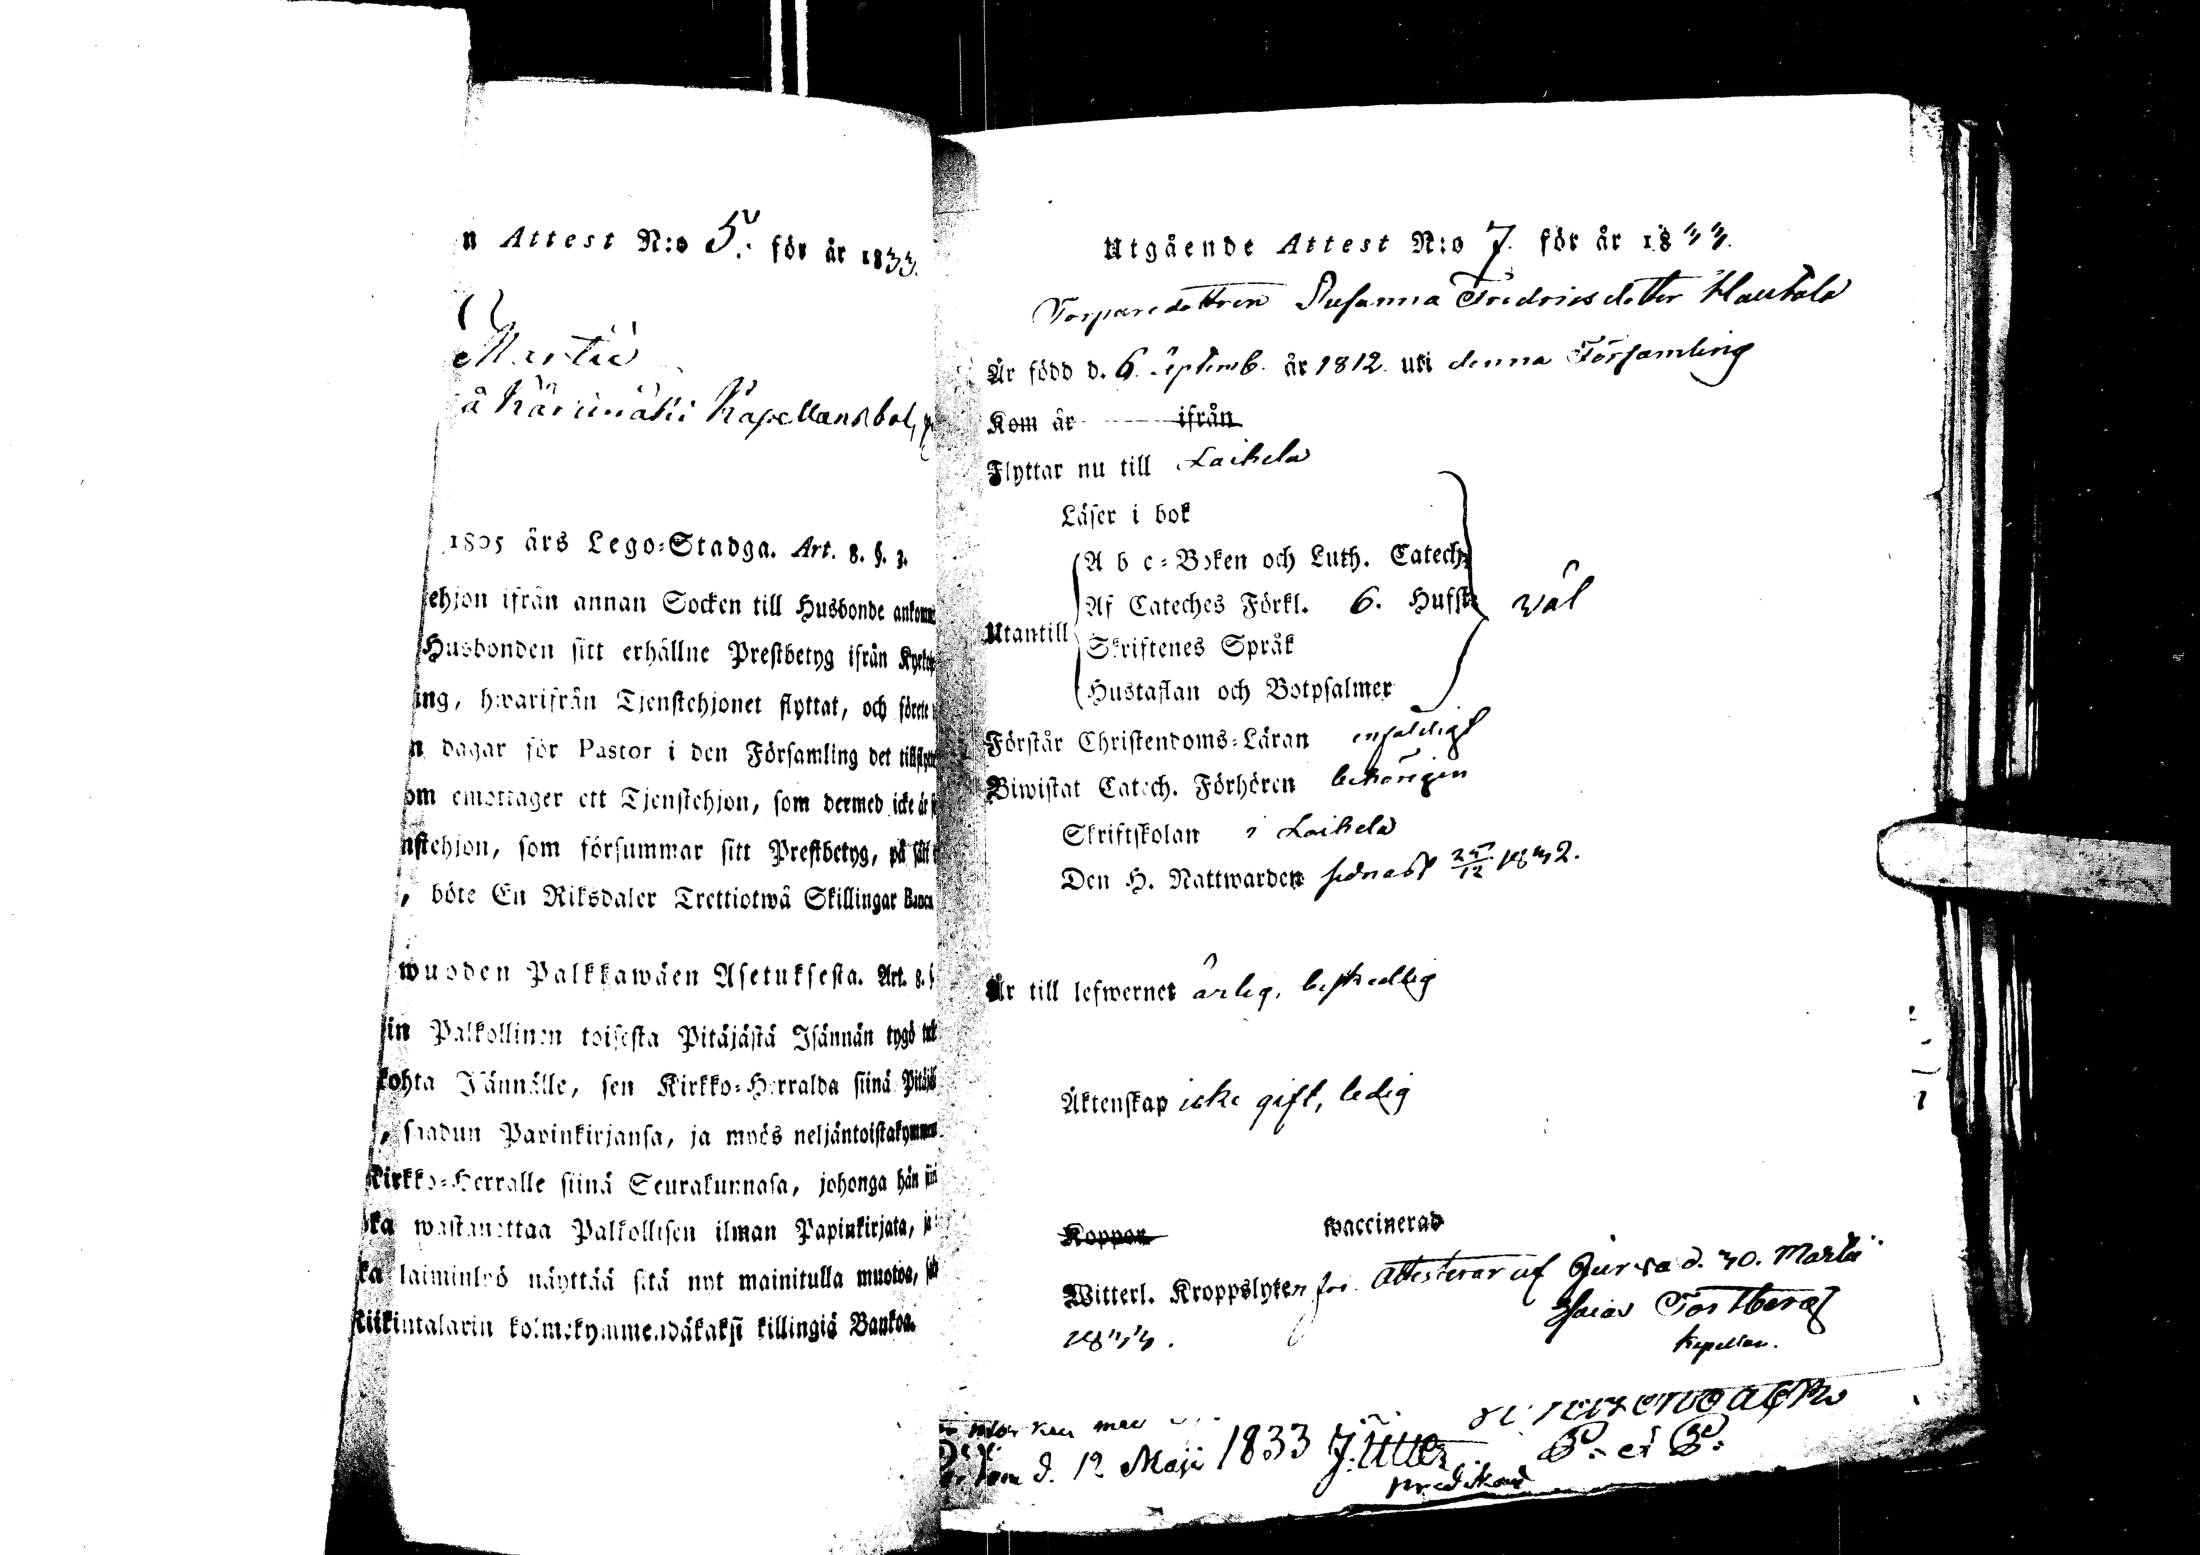 n Attest N:o 5. för år 1833.
Martii
å Kärimäki Kapellansbol,
1805 års Lego-Stadga. Art. 8. §. 3.
ehjon ifrån annan Socken till Husbonde ankomm
Husbonden sitt erhållne Prestbetyg ifrån Kyrko
ing, hwarifrån Tjenstehjonet flyttat, och förete
n dagar för Pastor i den Församling det tillflytt
om emottager ett Tjenstehjon, som dermed icke är
nstehjon, som försummar sitt Prestbetyg, på sätt
, böte En Riksdaler Trettiotwå Skillingar Banco
wuoden Palkkawäen Asetuksesta. Art. 8. §
in Palkollinen toisesta Pitäjästä Isännän tygö tul
kohta Isännälle, sen Kirkko-Herralda siinä Pitäjä
, saadun Papinkirjansa, ja myös neljäntoistakymmen
Kirkko-Herralle siinä Seurakunnasa, johonga hän
ka wastanottaa Palkollisen ilman Papinkirjata, ja
ka laiminlyö näyttää sitä nyt mainitulla muotoa,
Riikintalarin kolmekymmendäkaksi killingiä Bankoa.
Utgående Attest N:o 7. för år 1833.
Torparedottren Susanna Fredricsdotter Hautala
Är född d. 6. Septemb. år 1812. uti denna Församling
Kom år ifrån
Flyttar nu till Laihela
Läser i bok
A b c-Boken och Luth. Catech.
Af Cateches Förkl. 6. Hufst. väl
Utantill
Skriftenes Språk
Hustaflan och Botpsalmer
Förstår Christendoms-Läran enfaldigt
Biwistat Catech. Förhören behörigen
Skriftskolan i Laihela
Den H. Nattwarden sednast 25/12 1832.
Är till lefwernet ärlig, beskedlig
Äktenskap icke gift, ledig
Koppor waccinerad
Witterl. Kroppslyten fri. Attesterar af Jurva d. 30. Martii
1833. Esaias Forsberg
Kapellan.
d. 12 Maji 1833 J.
P. et P.